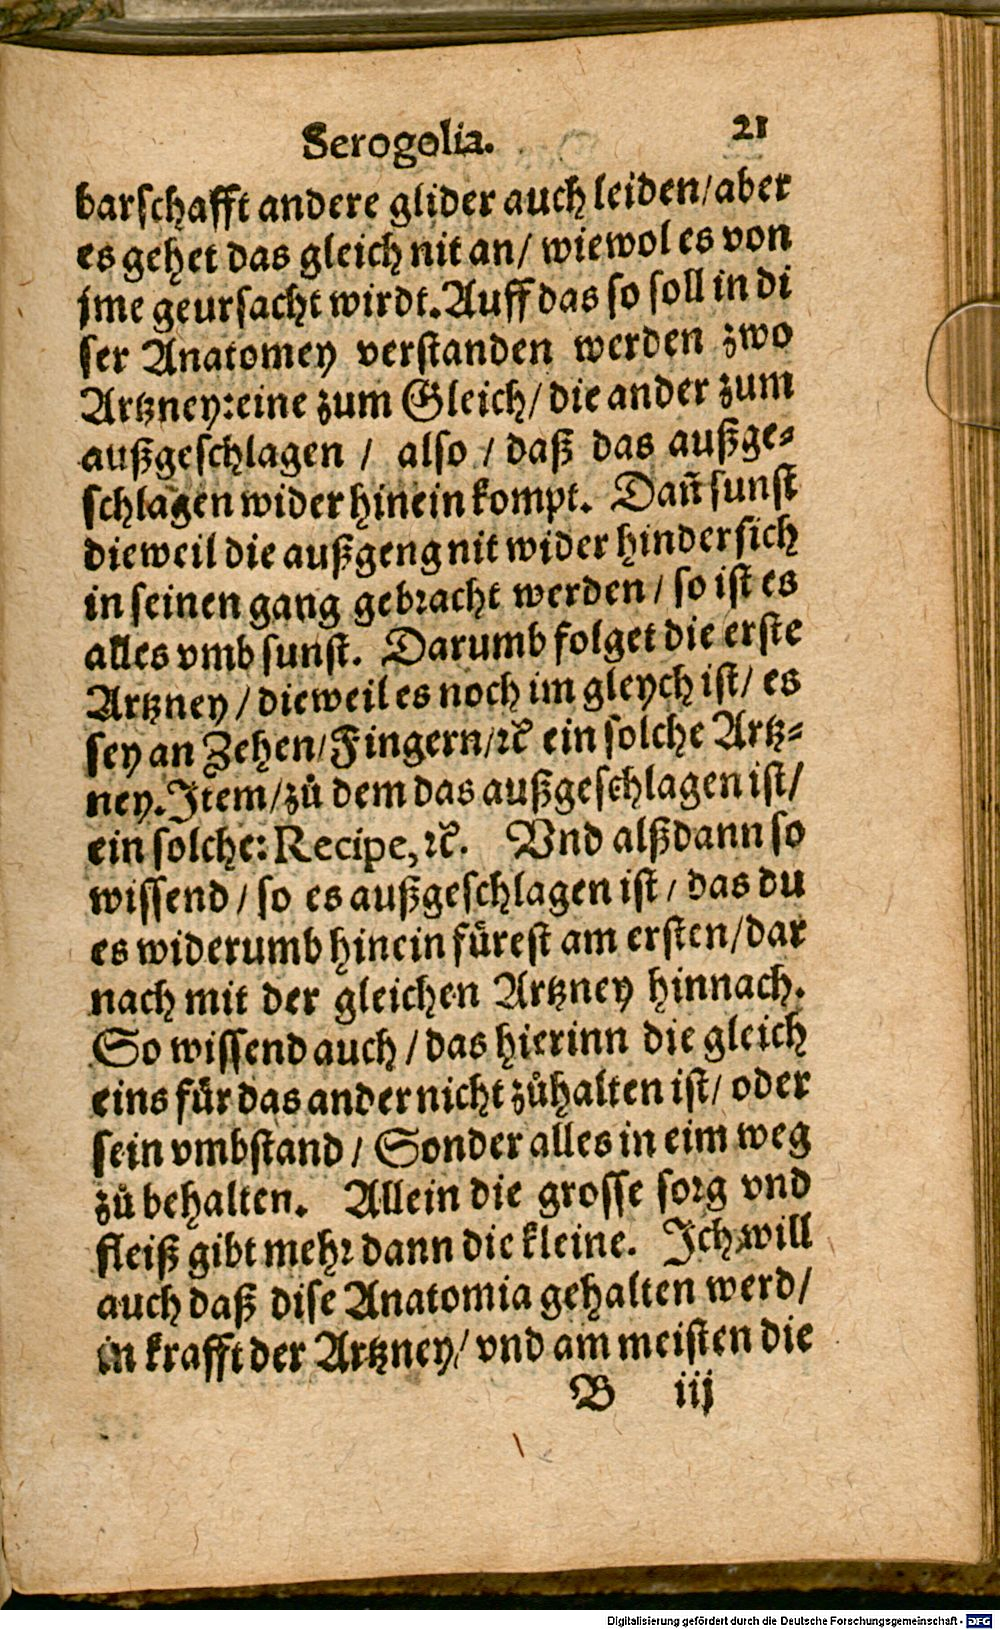 Serogolia. 21
barſchafft andere glider auch leiden/aber
es gehet das gleich nit an/ wiewol es von
jme geurſacht wirdt. Auff das ſo ſoll in di
ſer Anatomey verſtanden werden zwo
Artzney: eine zum Gleich/ die ander zum
außgeſchlagen / alſo / daß das außge⸗
ſchlagen wider hinein kompt. Dañ ſunſt
dieweil die außgeng nit wider hinderſich
in ſeinen gang gebꝛacht werden / ſo iſt es
alles vmb ſunſt. Darumb folget die erſte
Artzney / dieweil es noch im gleych iſt/ es
ſey an Zehen/Fingern/ꝛc̃ ein ſolche Artz⸗
ney. Item/zuͦ dem das außgeſchlagen iſt/
ein ſolche: Recipe, ꝛc̃. Vnd alßdann ſo
wiſſend / ſo es außgeſchlagen iſt / das du
es widerumb hinein fuͤreſt am erſten/dar
nach mit der gleichen Artzney hinnach.
So wiſſend auch / das hierinn die gleich
eins fuͤr das ander nicht zuͦhalten iſt/ oder
ſein vmbſtand / Sonder alles in eim weg
zuͦ behalten. Allein die groſſe ſoꝛg vnd
fleiß gibt mehꝛ dann die kleine. Ich will
auch daß diſe Anatomia gehalten werd/
in krafft der Artzney/ vnd am meiſten die
B iij
Digitalisierung gefördert durch die Deutsche Forschungsgemeinschaft - DFG